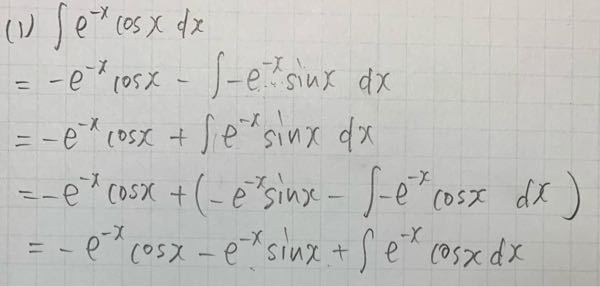 (1) ∫ e^{-x} cos x dx
= -e^{-x} cos x - ∫ -e^{-x} sin x dx
= -e^{-x} cos x + ∫ e^{-x} sin x dx
= -e^{-x} cos x + (-e^{-x} sin x - ∫ -e^{-x} cos x dx)
= -e^{-x} cos x - e^{-x} sin x + ∫ e^{-x} cos x dx